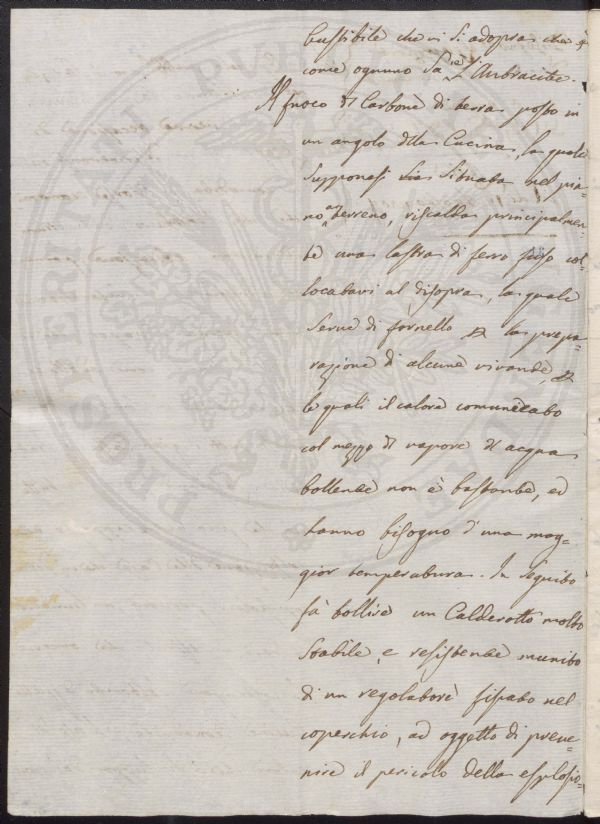 bustibile che vi si adopra che è
come ognuno sa l'Antracite.
Il fuoco di Carbone di terra posto in
un angolo dlla Cucina, la quale
supponasi sia situata nel pia-
no a terreno, riscalda principalmen-
te una lastra di ferro fuso col-
locatavi al disopra, la quale
serve di fornello p la prepa-
razione di alcune vivande, p
le quali il calore comunicato
col mezzo di vapore d'acqua
bollente non è bastante, ed
hanno bisogno d'una mag-
gior temperatura. In seguito
fà bollire un Calderotto molto
stabile, e resistente munito
di un regolatore fissato nel
coperchio, ad oggetto di preve-
nire il pericolo della esplosio-
PROSPERITATI PVBLICAE